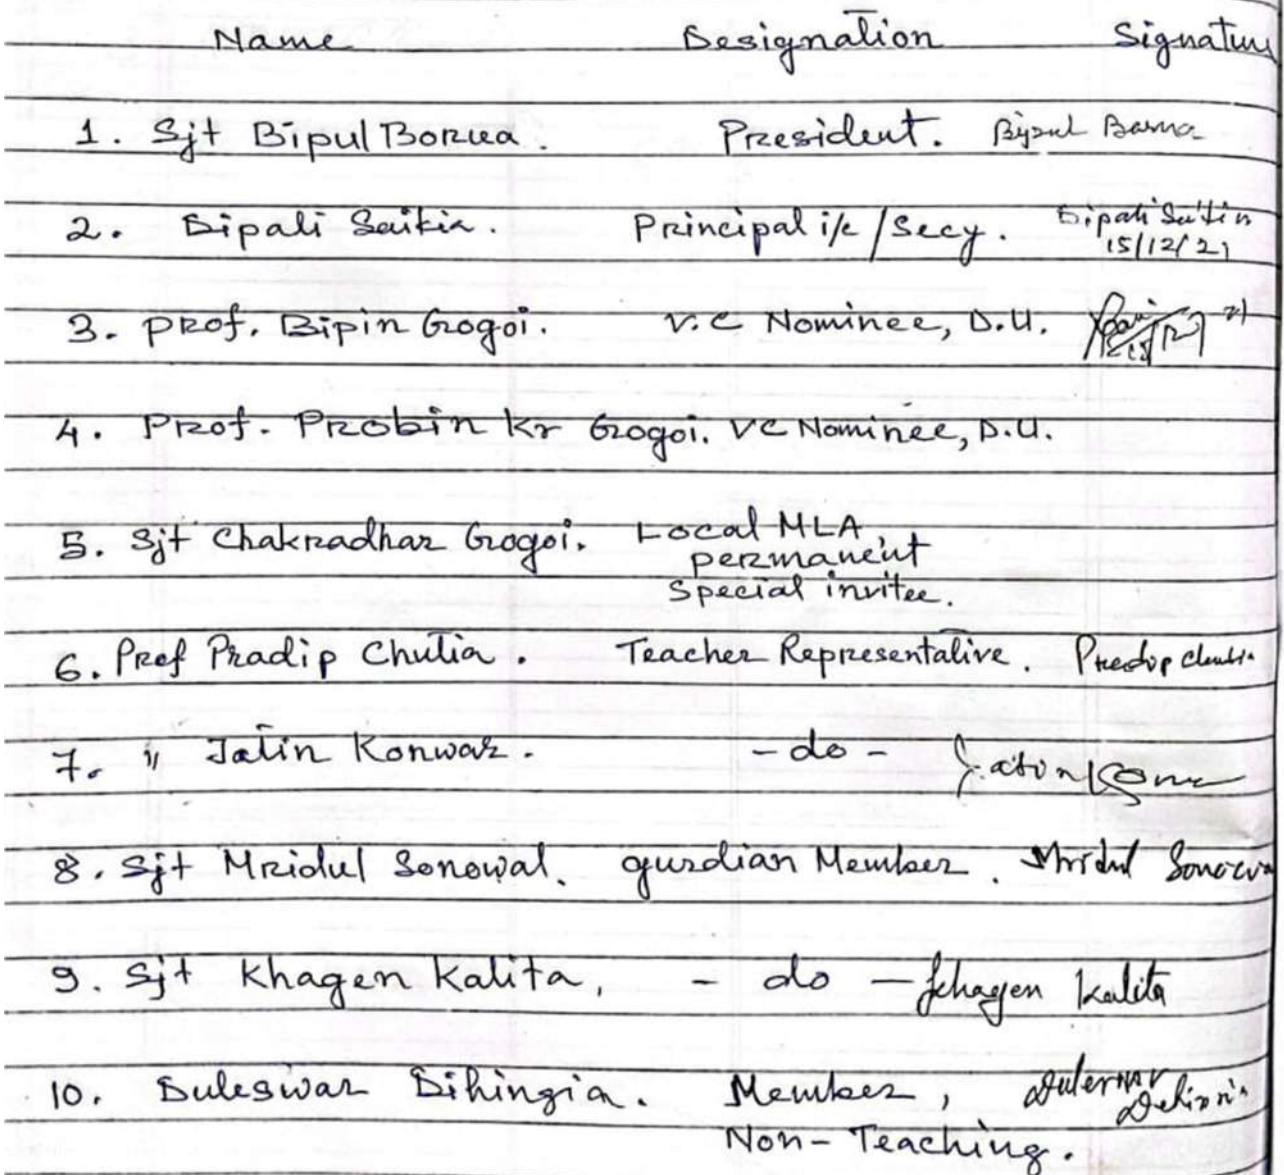 Name Designation Signature
1. Sjt Bipul Borua. President. Bipul Barua
2. Dipali Saikia. Principal i/c /Secy. Dipali Saikia
15/12/21
3. Prof. Bipin Gogoi. V.C Nominee, D.U.
4. Prof. Probin Kr Gogoi. VC Nominee, D.U.
5. Sjt Chakradhar Gogoi. Local MLA
permanent
Special invitee.
6. Prof Pradip Chutia. Teacher Representative. Pradip Chutia
7. " Jatin Konwar. - do - Jatin Konwar
8. Sjt Mridul Sonowal. gurdian Member. Mridul Sonowal
9. Sjt Khagen Kalita, - do - Khagen Kalita
10. Duleswar Dihingia. Member,
Non-Teaching.